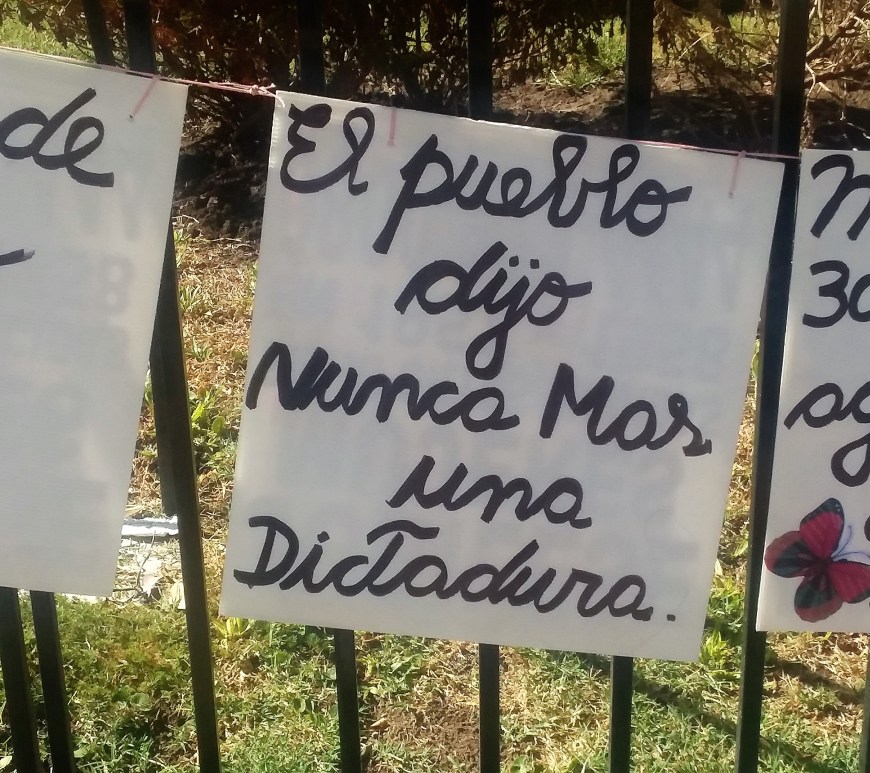 de
El pueblo
dijo
Nunca Mas
una
Dictadura.
30